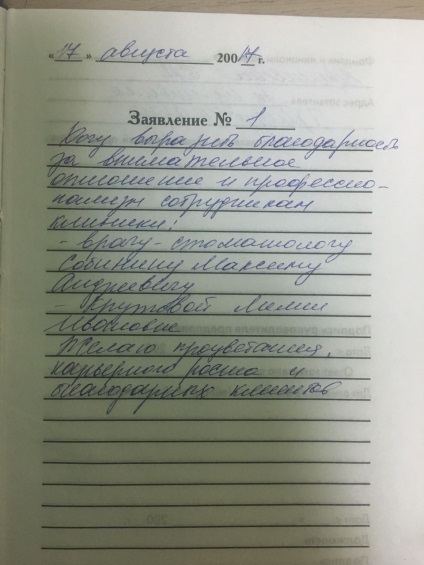 «17» августа 20017 г.
Заявление № 1
Хочу выразить благодарность
за внимательное
отношение и профессио-
нализм сотрудникам
клиники:
- врачу-стоматологу
Собинину Максиму
Андреевичу
- Круговой Лилии
Ивановне
Желаю процветания,
карьерного роста и
благодарных клиентов